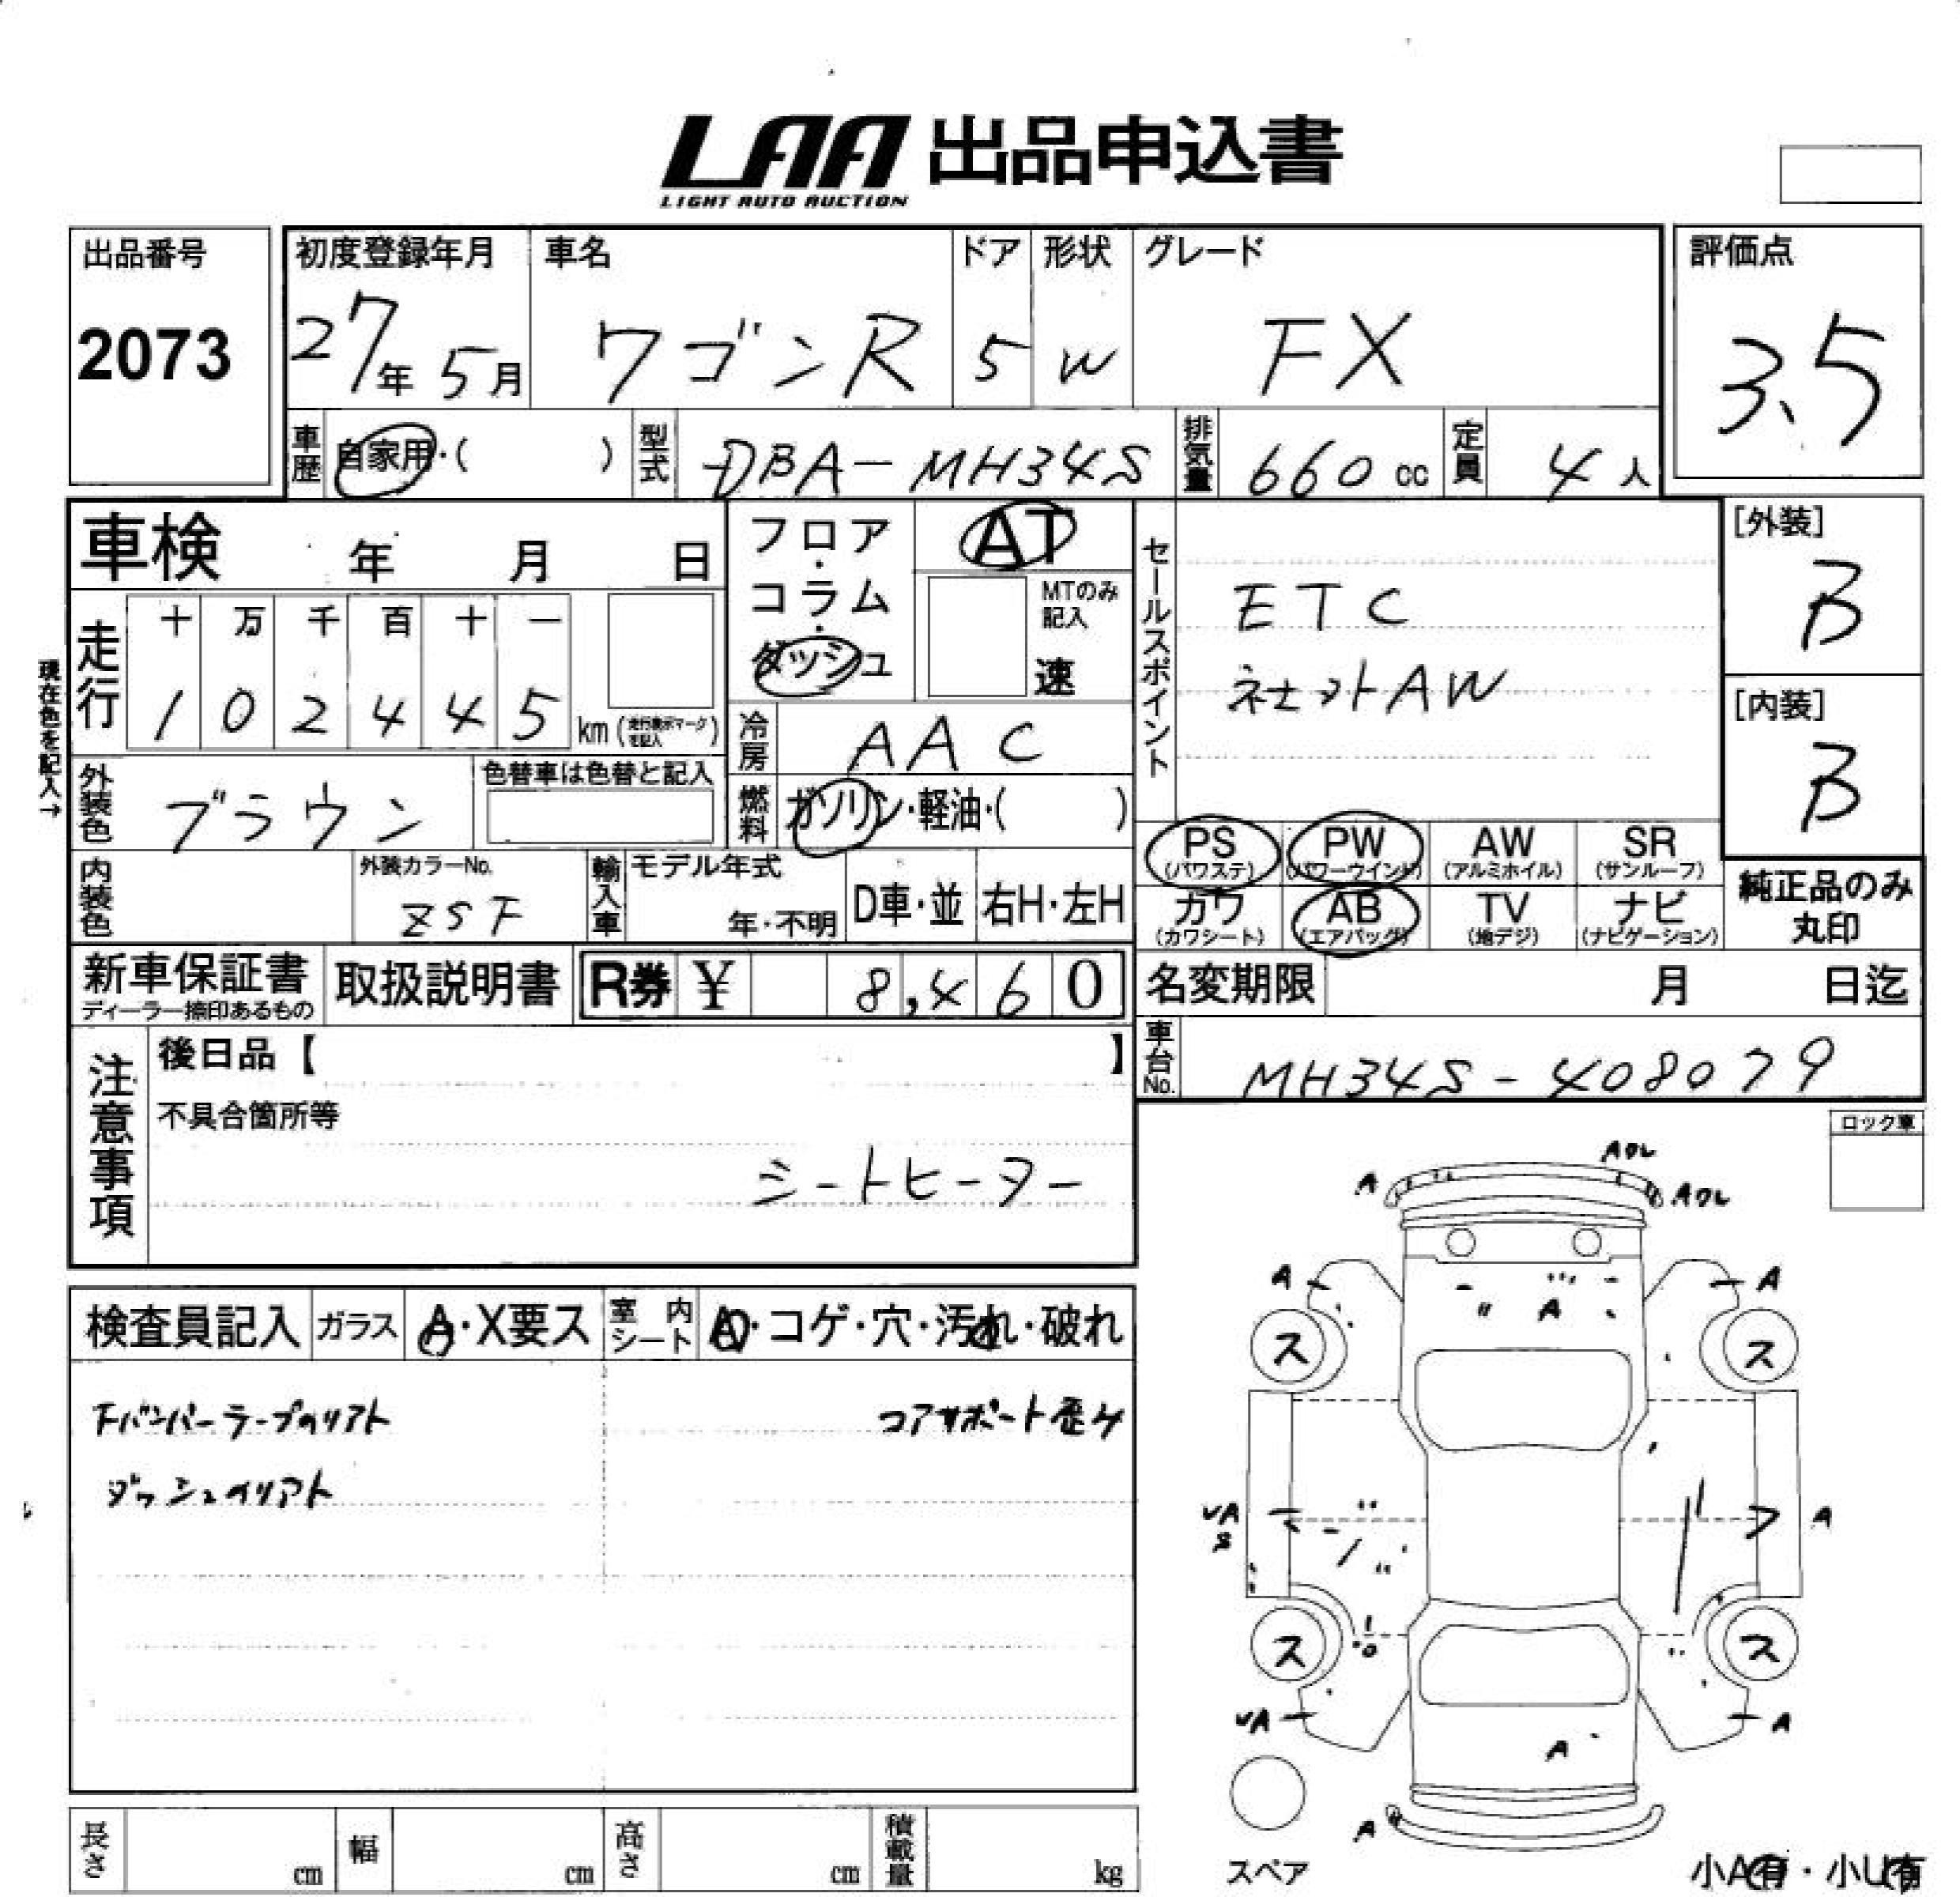 LAA 出品申込書
LIGHT AUTO AUCTION
出品番号
2073
初度登録年月
27年 5月
車名
ワゴンR
ドア
5
形状
W
グレード
FX
評価点
3.5
車歴
自家用・( )
型式
DBA-MH34S
排気量
660 cc
定員
4 人
車検 年 月 日
フロア・コラム・ダッシュ
AT
MTのみ記入
速
セールスポイント
ETC
ネセットAW
[外装]
B
[内装]
B
現在色を記入→
走行
十 万 千 百 十 一
1 0 2 4 4 5
km (走行表示マークを記入)
冷房
AAC
外装色
ブラウン
色替車は色替と記入
燃料
ガソリン・軽油・( )
PS (パワステ)
PW (パワーウインド)
AW (アルミホイル)
SR (サンルーフ)
カワ (カワシート)
AB (エアバッグ)
TV (地デジ)
ナビ (ナビゲーション)
純正品のみ
丸印
内装色
外装カラーNo.
ZSF
輸入車
モデル年式
年・不明
D車・並
右H・左H
新車保証書
ディーラー捺印あるもの
取扱説明書
R券 ¥ 8,460
名変期限 月 日迄
注意事項
後日品【 】
不具合箇所等
シートヒーター
車台No.
MH34S-408079
ロック車
検査員記入
ガラス
A・X要ス
室内シート
A・コゲ・穴・汚れ・破れ
Fバンパーテープのリアト
コアサポート歪み
ダッシュのリアト
A
A
A
A
A
ス
ス
A
A
ス
ス
A
A
A
スペア
長さ cm
幅 cm
高さ cm
積載量 kg
小A有・小U有